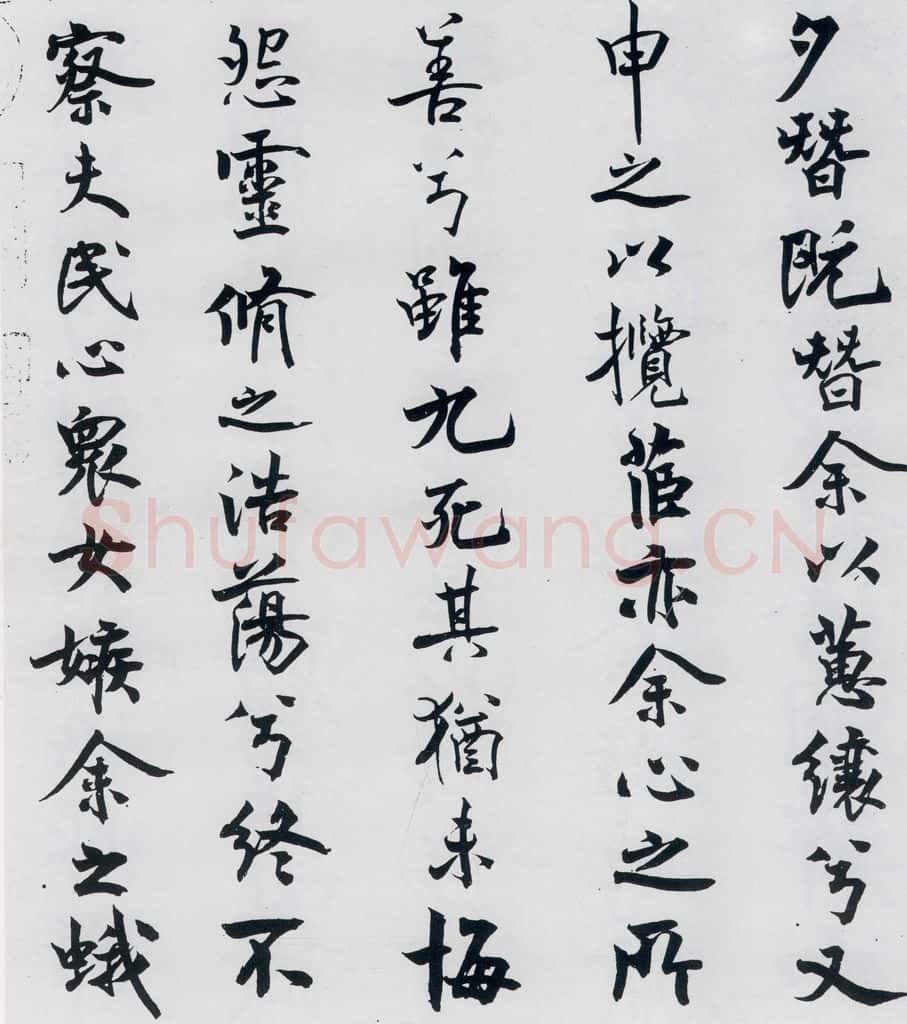 夕朁既朁余以蕙纕兮又
申之以攬茝亦余心之所
善兮雖九死其猶未悔
怨靈脩之浩蕩兮終不
察夫民心衆女嫉余之蛾
Shufawang.CN